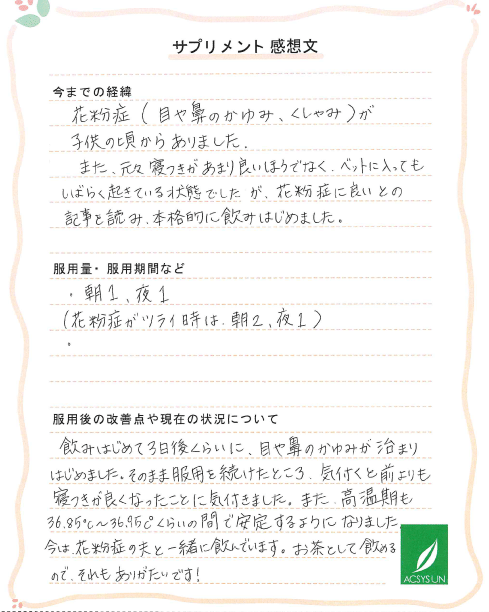 サプリメント 感想文
今までの経緯
花粉症(目や鼻のかゆみ、くしゃみ)が
子供の頃からありました.
また、元々寝つきがあまり良いほうでなく、ベットに入っても
しばらく起きている状態でしたが、花粉症に良いとの
記事を読み、本格的に飲みはじめました。
服用量・服用期間など
・朝1、夜1
(花粉症がツライ時は、朝2、夜1)
・
服用後の改善点や現在の状況について
飲みはじめて3日後くらいに、目や鼻のかゆみが治まり
はじめました。そのまま服用を続けたところ、気付くと前よりも
寝つきが良くなったことに気付きました。また、高温期も
36.85℃〜36.95℃くらいの間で安定するようになりました.
今は、花粉症の夫と一緒に飲んでいます。お茶として飲める
ので、それもありがたいです!
ACSYS UN